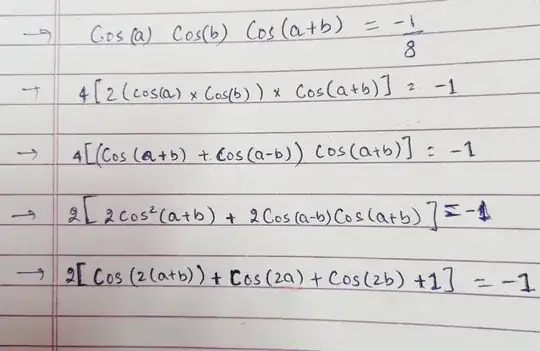 → Cos(a) Cos(b) Cos(a+b) = -1/8
→ 4[2(cos(a) × Cos(b)) × Cos(a+b)] = -1
→ 4[(Cos(a+b) + Cos(a-b)) Cos(a+b)] = -1
→ 2[2cos²(a+b) + 2Cos(a-b)Cos(a+b)] = -1
→ 2[Cos(2(a+b)) + Cos(2a) + Cos(2b) + 1] = -1